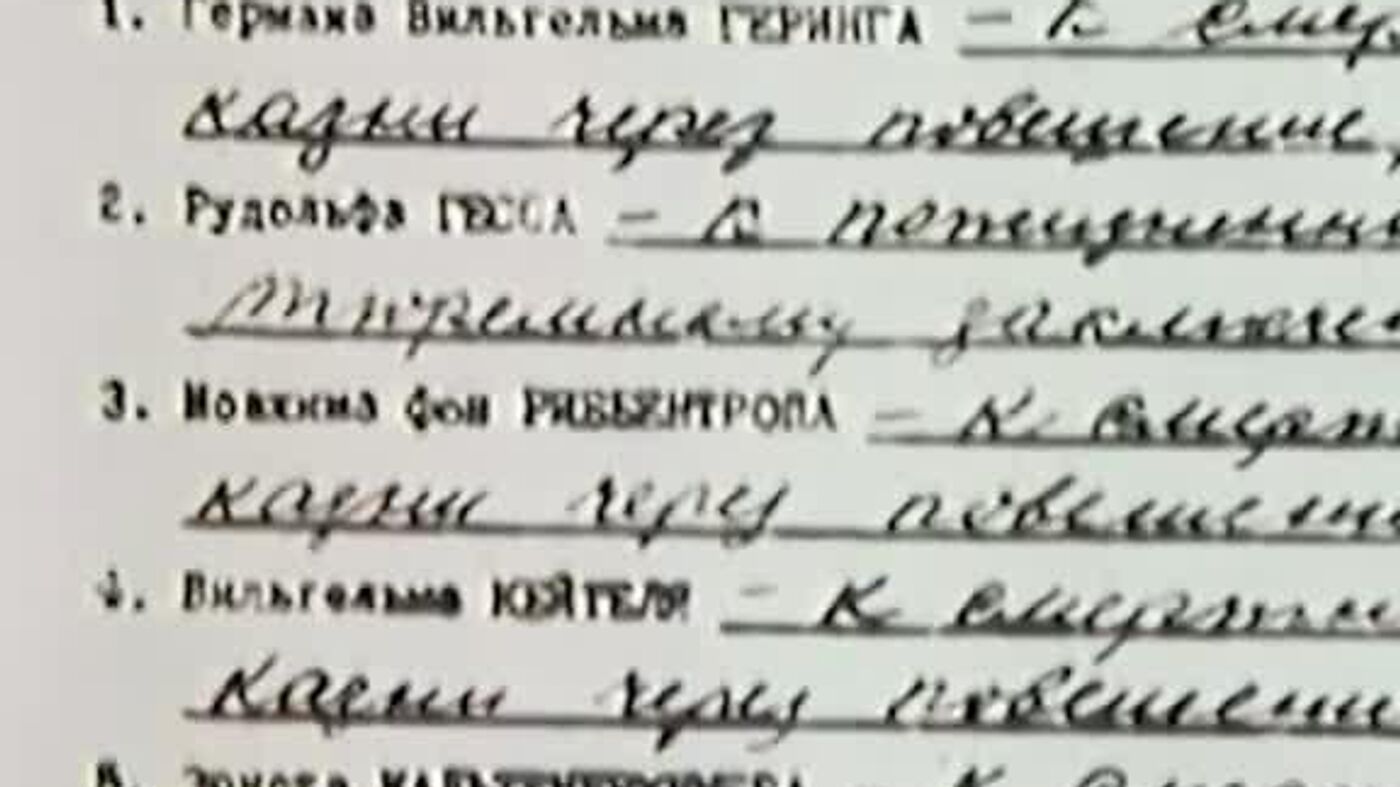 1. Германа Вильгельма ГЕРИНГА – к смер
казни через повешение,
2. Рудольфа ГЕССА – к пожизненн
тюремному заключе
3. Иоахима фон РИББЕНТРОПА – к смерт
казни через повешени
4. Вильгельма КЕЙТЕЛЯ – к смертно
казни через повешени
5. Эрнста КАЛЬТЕНБРУННЕРА – к смер